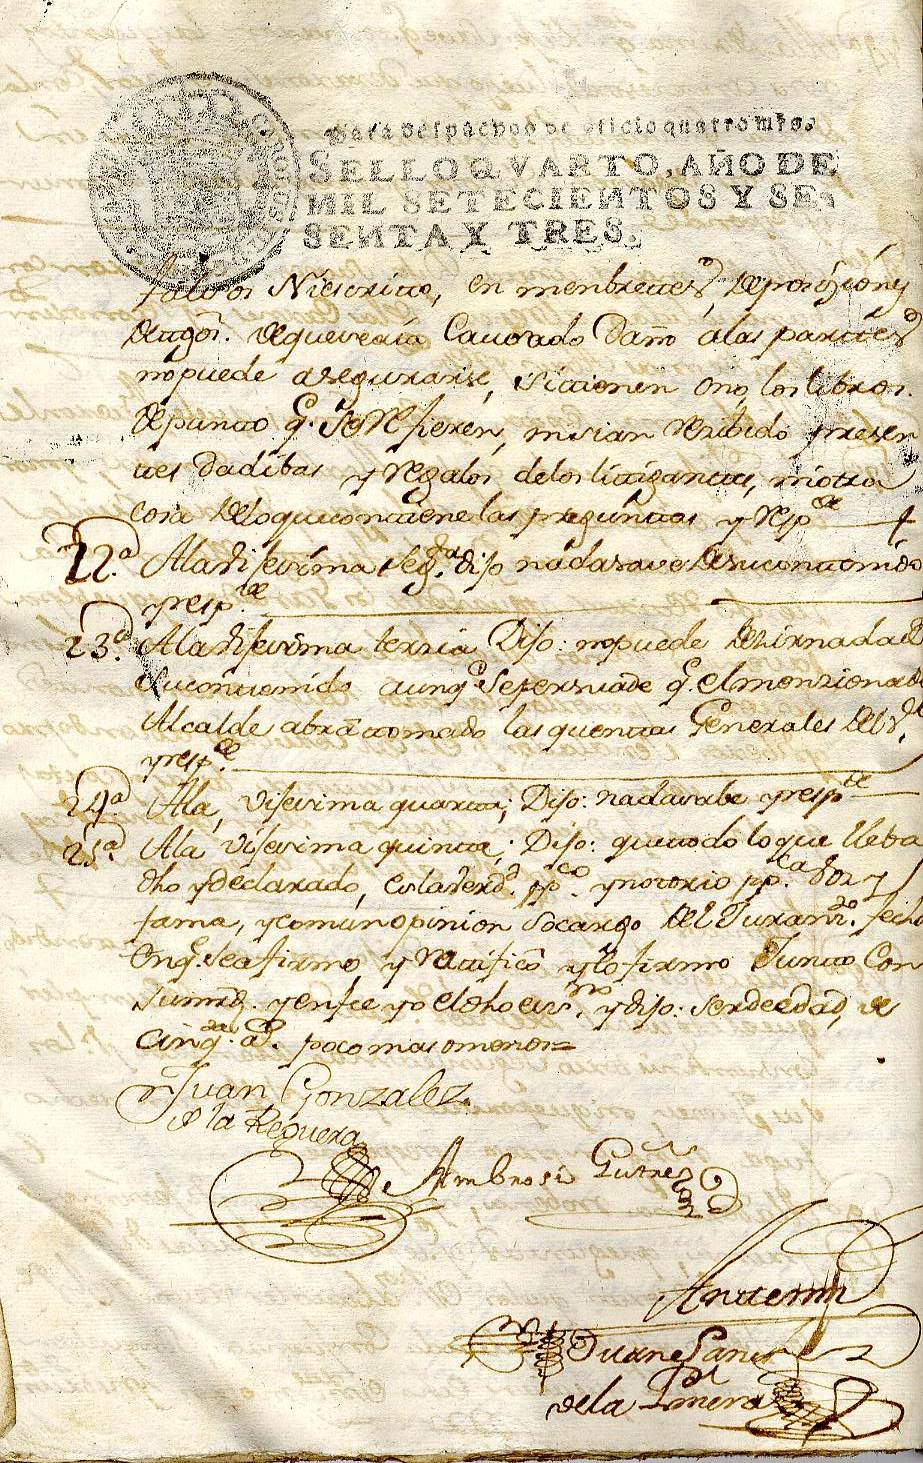 Para despachos de oficio quatro mrs.
SELLO QVARTO, AÑO DE
MIL SETECIENTOS Y SE-
SENTA Y TRES.
falsos Niescritto, en menbrettes, deposiziones
dettgos. dequeveria Causado Daño alas parttes
nopuede asegurarse, sittienen ono, los libros
depunto q. Se Refieren, nisian Rezibido presen
ttes Dadibas y Regalos delos litigantes, niotra
Cosa delo quecontiene las preguntas y resp.de
22.a Ala Visesima seg.da dijo nadasave desucontenido
yresp.de
23.a Ala Visesima terzia Dijo: nopuede dezirnada de
sucontenido aunq.e Sepersuade q.e elmenzionado
Alcalde abrá tomado las quenttas Generales del
yresp.de
24.a Ala, Visesima quarta; Dijo: nadasabe yresp.de
25.a Ala Visesima quinta; Dijo: quettodo loque lleba
dho ydeclarado, eslaverd.d pp.co ynotorio pp.ca boz y
fama, ycomun opinion Socargo del Juram.to fecho
Enq. Seafirmo, y Rattificó ylofirmo Juntto Con
Sumrd. yenfee yo eldho ess.no ydijo: serdeedad, de
Cinq.ta a.s pocomas omenos=
Juan Gonzalez
de la Reguera
Ambrosio Gutrrez
Anttemi
Juan
dela